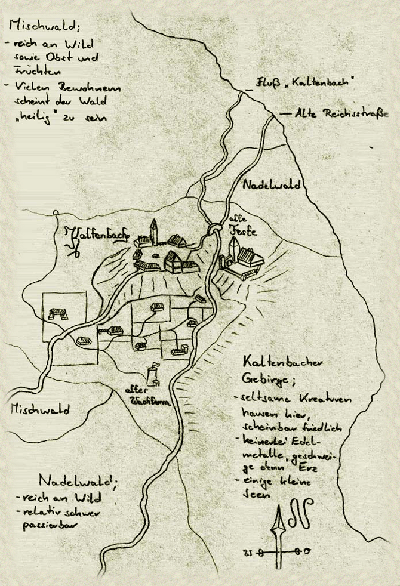 Mischwald:
- reich an Wild
sowie Obst und
Früchten
- Vielen Bewohnern
scheint der Wald
„heilig" zu sein
Fluß „Kaltenbach"
Alte Reichsstraße
Nadelwald
Kaltenbach
alte
Feste
alter
Wachturm
Mischwald
Kaltenbacher
Gebirge:
- seltsame Kreaturen
hausen hier,
scheinbar friedlich
- keinerlei Edel-
metalle, geschwei-
ge denn Erz
- einige kleine
Seen
Nadelwald:
- reich an Wild
- relativ schwer
passierbar
N
W
O